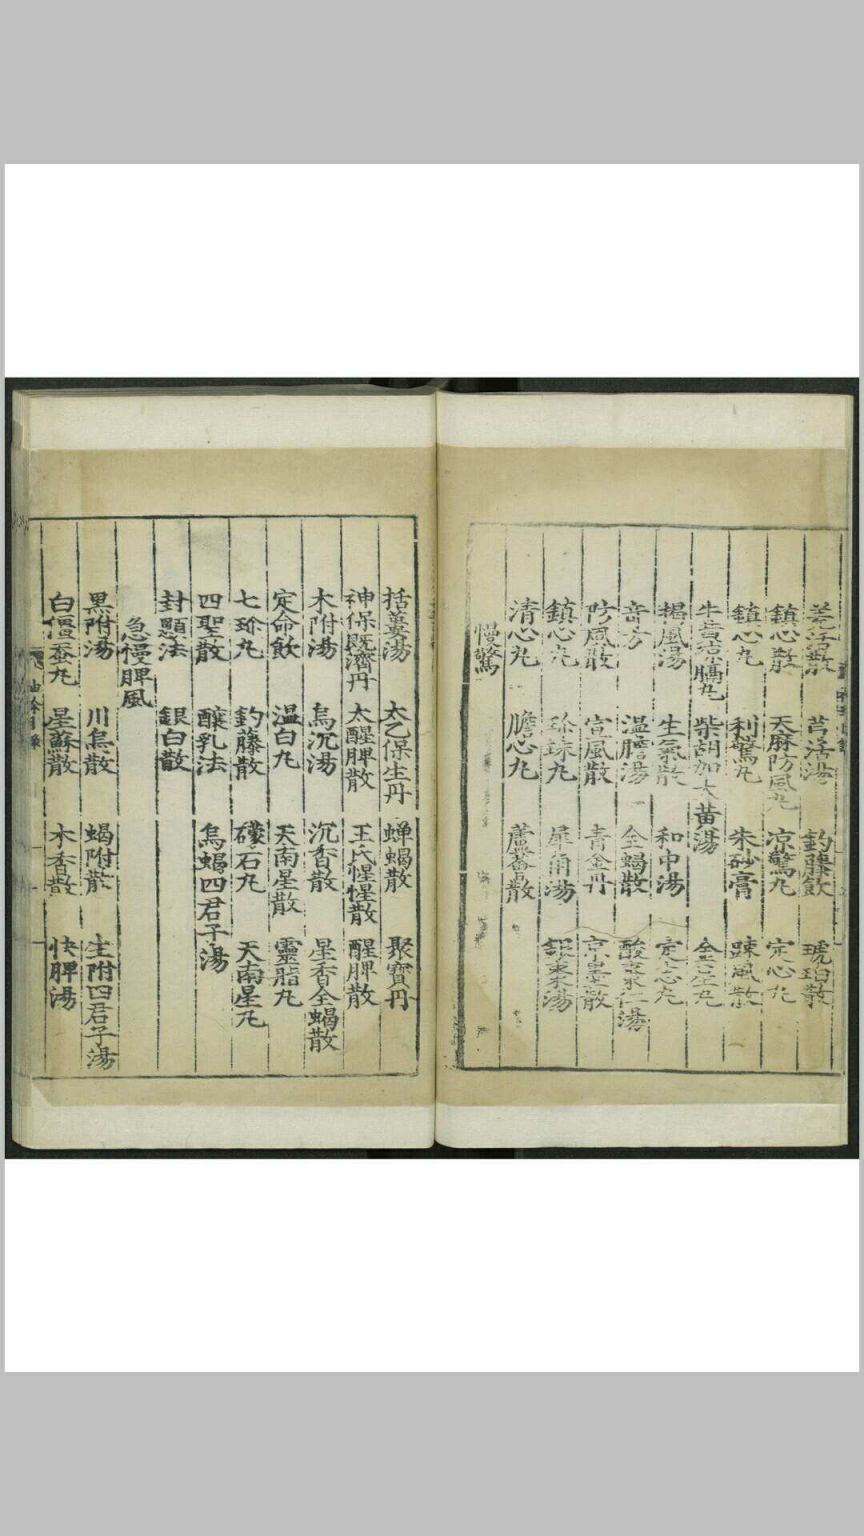 羌活散 芎活湯 釣藤飲 琥珀散
鎮心散 天麻防風丸 凉驚丸 定心丸
鎮心丸 利驚丸 朱砂膏 踈風散
牛黃 膈丸 柴胡加大黃湯
揭風湯 生氣散 和中湯 定志丸
奇方 温膽湯 全蝎散 酸棗仁湯
防風散 宣風散 青金丹 京墨散
鎮心丸 珍珠丸 犀角湯
清心丸 膽心丸 蘆薈散
慢驚
括蔞湯 太乙保生丹 蟬蝎散 聚寶丹
神保既濟丹 太醒脾散 王氏惺惺散 醒脾散
木附湯 烏沉湯 沉香散 星香全蝎散
定命飲 温白丸 天南星散 靈脂丸
七珎丸 釣藤散 礞石丸 天南星丸
四聖散 釀乳法 烏蝎四君子湯
封顋法 銀白散
急慢脾風
黑附湯 川烏散 蝎附散 生附四君子湯
白僵蚕丸 星蘇散 木香散 快脾湯